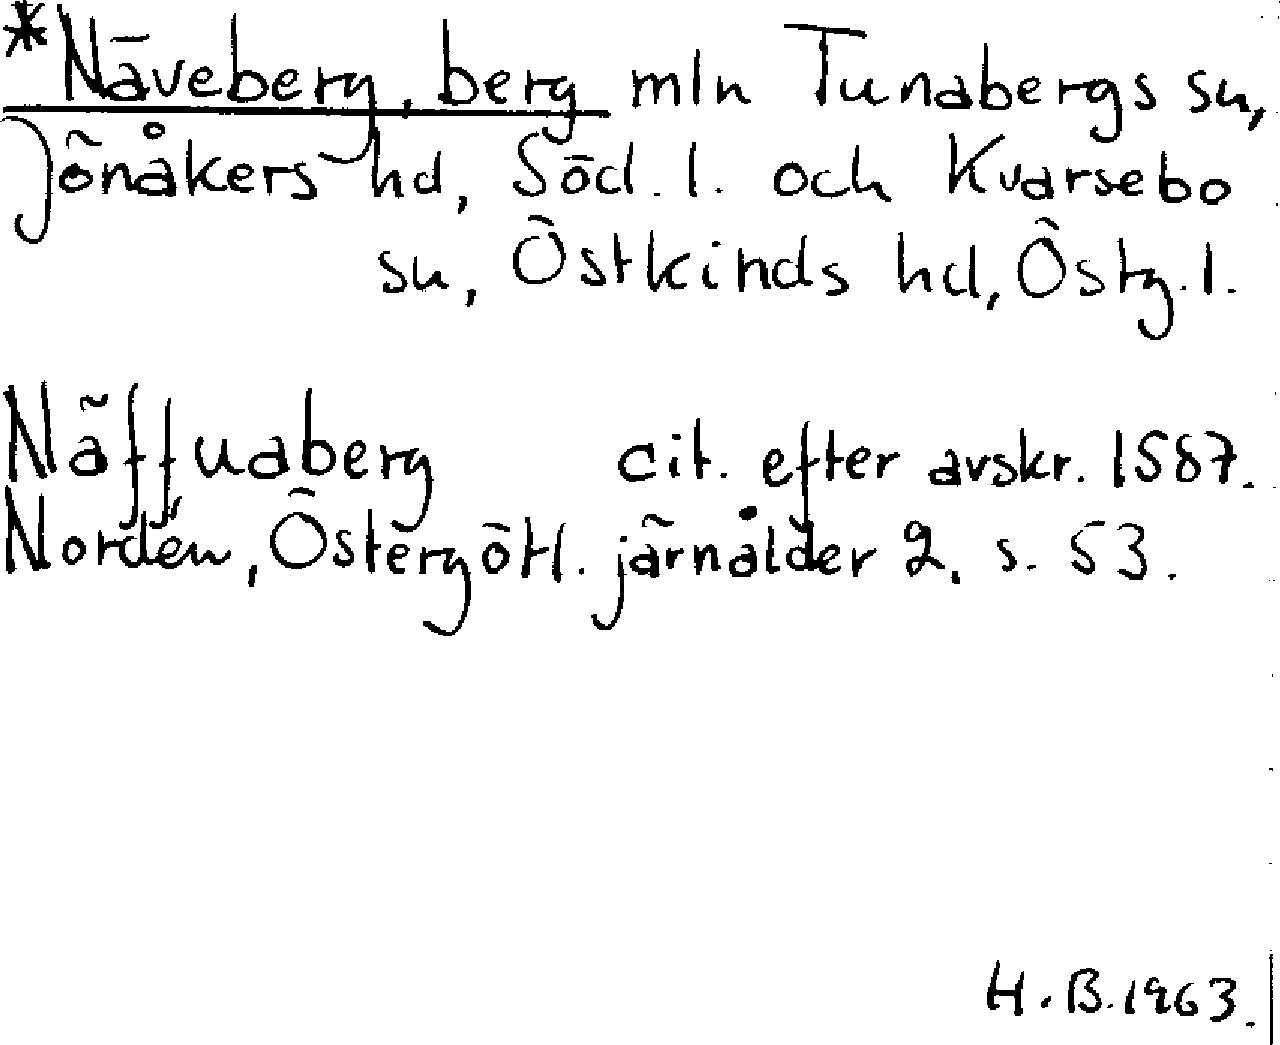 *Näveberg, berg mln Tunabergs sn,
Jönåkers hd, Söd. l. och Kvarsebo
sn, Östkinds hd, Östg. l.
Näffuaberg cit. efter avskr. 1587.
Nordén, Östergötl. järnålder 2, s. 53.
H. B. 1963.